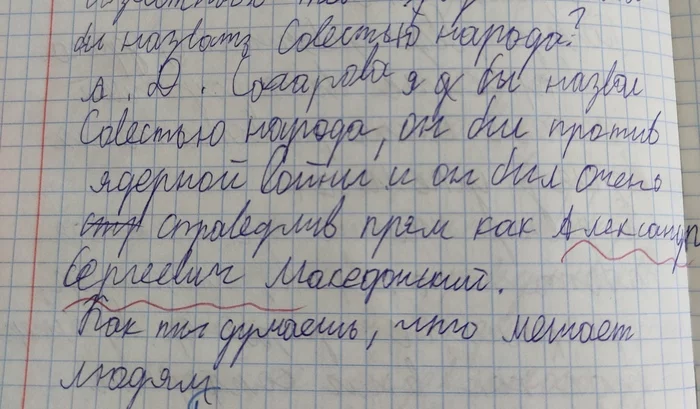 бы назвать Совестью народа?
А. Д. Сахарова я бы назвал
Совестью народа, он был против
ядерной войны и он был очень
справедлив прям как Александр
Сергеевич Македонский.
Как ты думаешь, что мешает
людям